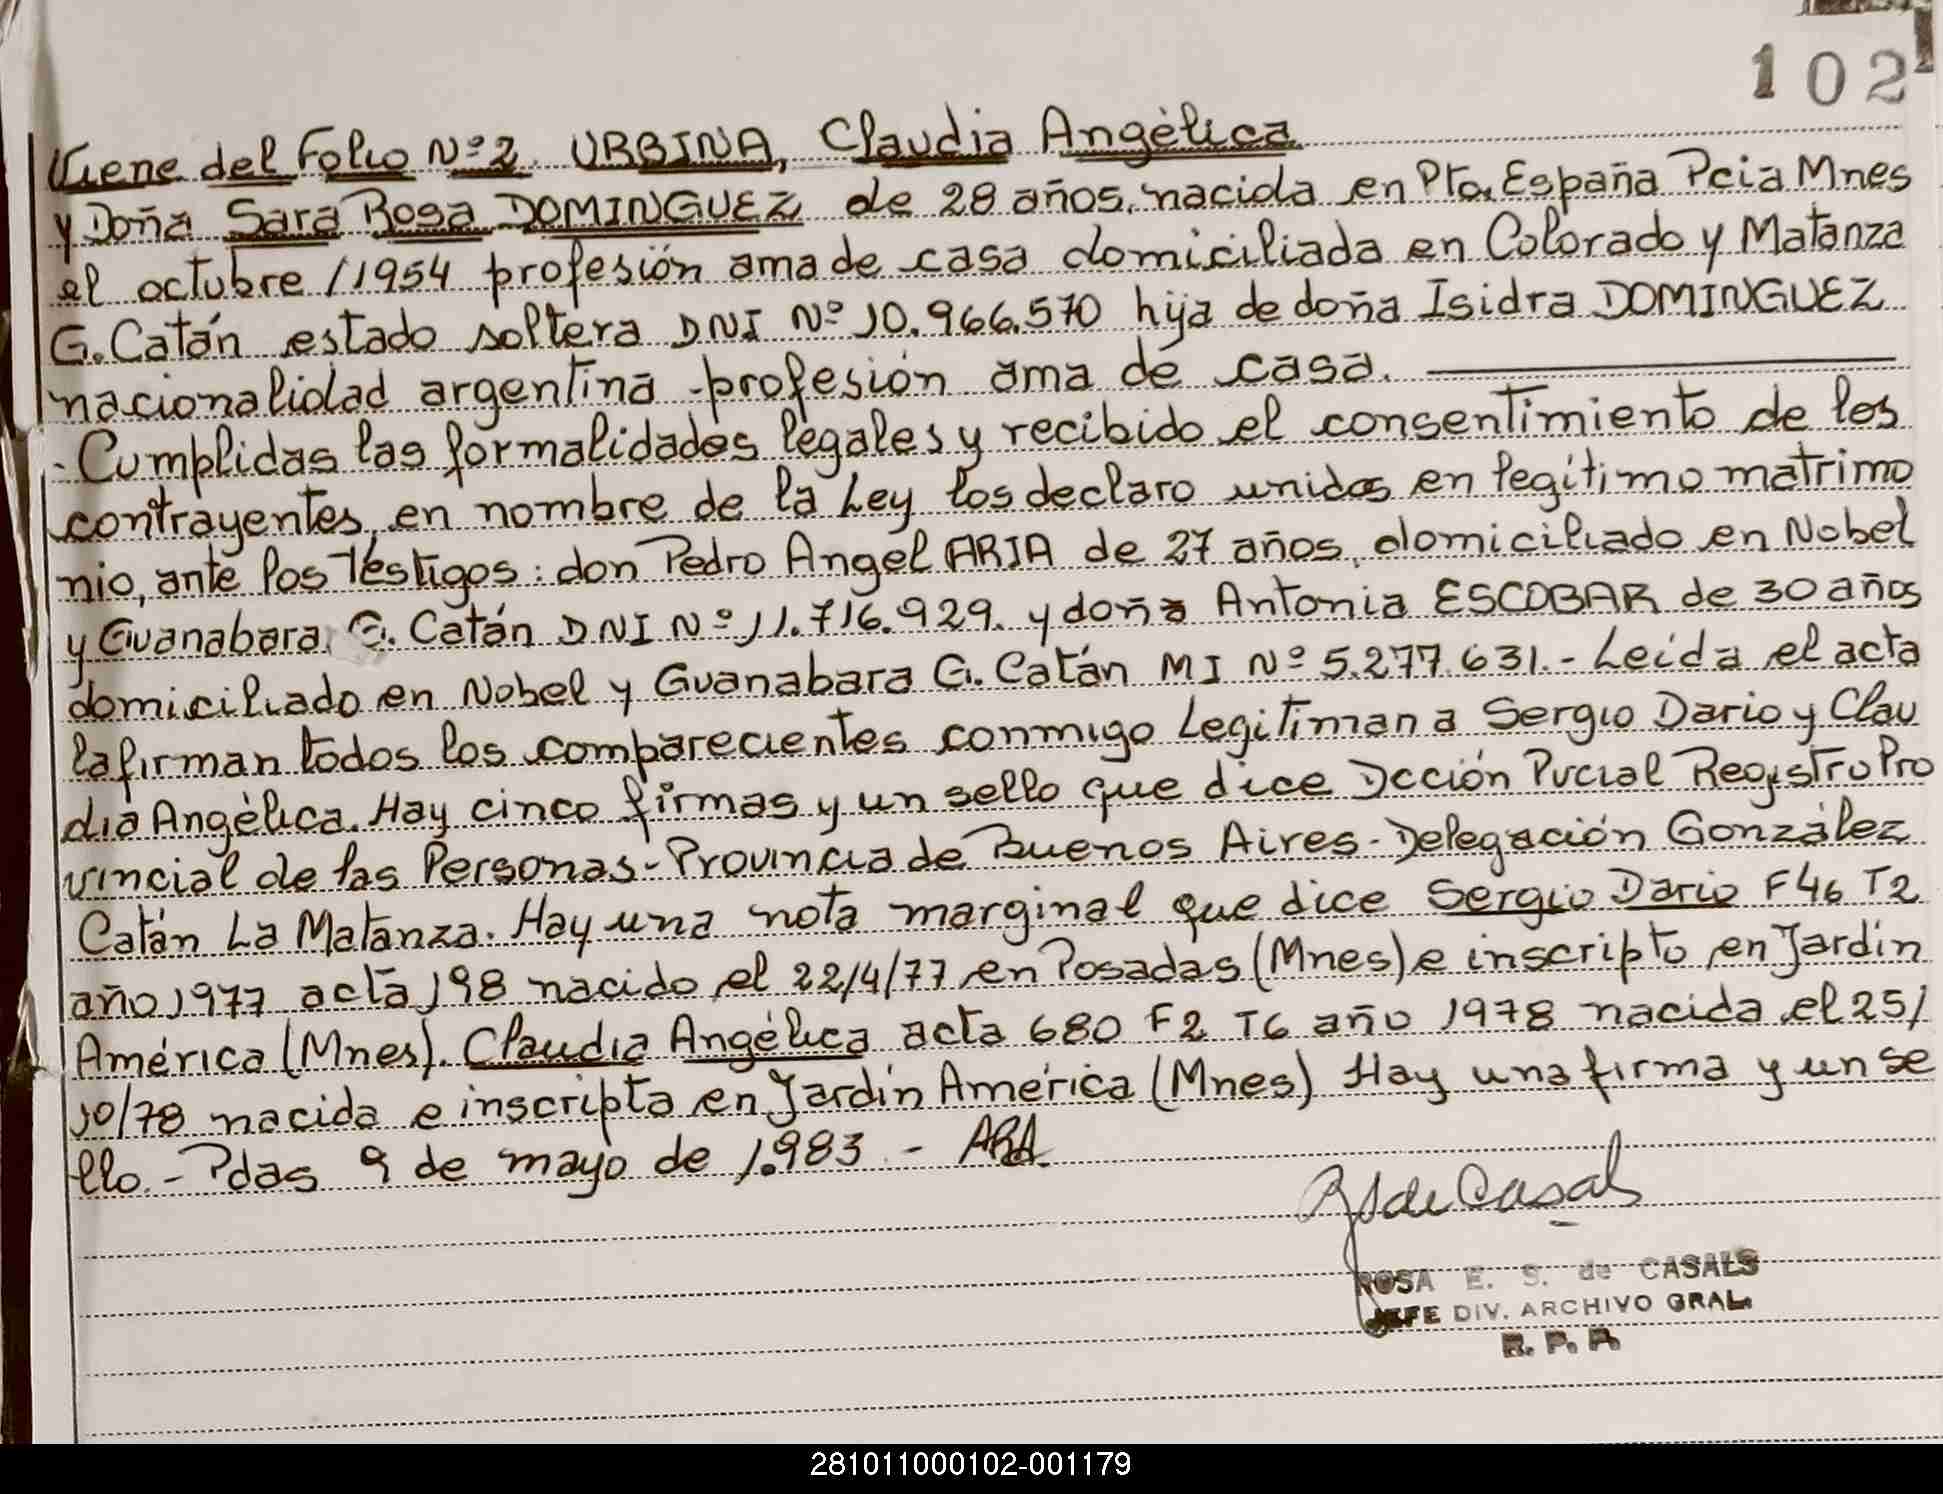 102
Viene del Folio Nº2. URBINA, Claudia Angélica
y Doña Sara Rosa DOMINGUEZ de 28 años. nacida en Pto. España Pcia Mnes
el octubre /1954 profesión ama de casa domiciliada en Colorado y Matanza
G. Catán estado soltera DNI Nº 10.966.570 hija de doña Isidra DOMINGUEZ
nacionalidad argentina profesión ama de casa.
- Cumplidas las formalidades legales y recibido el consentimiento de los
contrayentes, en nombre de la Ley los declaro unidos en legítimo matrimo
nio, ante los Testigos: don Pedro Angel ARIA de 27 años, domiciliado en Nobel
y Guanabara. G. Catán DNI Nº 11.716.929. y doña Antonia ESCOBAR de 30 años
domiciliado en Nobel y Guanabara G. Catán MI Nº 5.277.631.- Leída el acta
la firman todos los comparecientes conmigo Legitiman a Sergio Dario y Clau
dia Angélica. Hay cinco firmas y un sello que dice Dcción Pvcial Registro Pro
vincial de las Personas-Provincia de Buenos Aires-Delegación González
Catán La Matanza. Hay una nota marginal que dice Sergio Dario F46 T2
año 1977 acta 198 nacido el 22/4/77 en Posadas (Mnes) e inscripto en Jardín
América (Mnes). Claudia Angélica acta 680 F2 T6 año 1978 nacida el 25/
10/78 nacida e inscripta en Jardín América (Mnes) Hay una firma y un se
llo.- Pdas 9 de mayo de 1.983 - ARA
RS de Casals
ROSA E. S. de CASALS
JEFE DIV. ARCHIVO GRAL.
R. P. P.
281011000102-001179